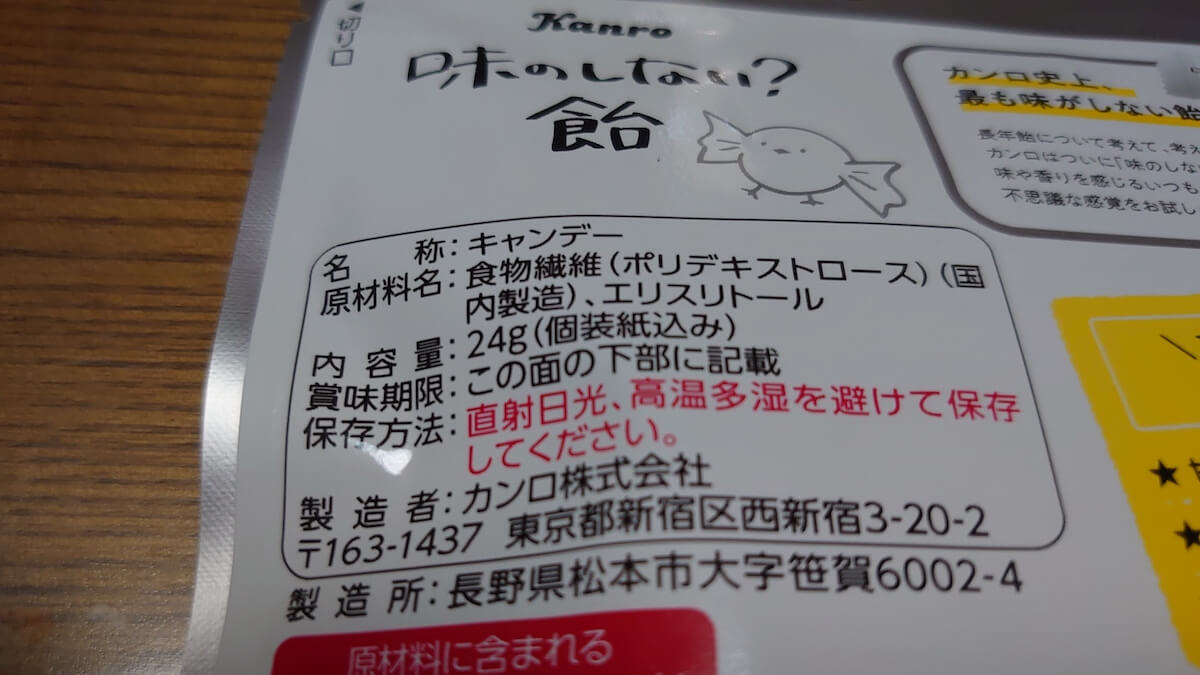 ◀切り口
Kanro
味のしない?
飴
カンロ史上、
最も味がしない飴
長年飴について考えて、考え
カンロはついに「味のしな
味や香りを感じるいつも
不思議な感覚をお試し
名称:キャンデー
原材料名:食物繊維(ポリデキストロース)(国
内製造)、エリスリトール
内容量:24g(個装紙込み)
賞味期限:この面の下部に記載
保存方法:直射日光、高温多湿を避けて保存
してください。
製造者:カンロ株式会社
〒163-1437 東京都新宿区西新宿3-20-2
製造所:長野県松本市大字笹賀6002-4
原材料に含まれる